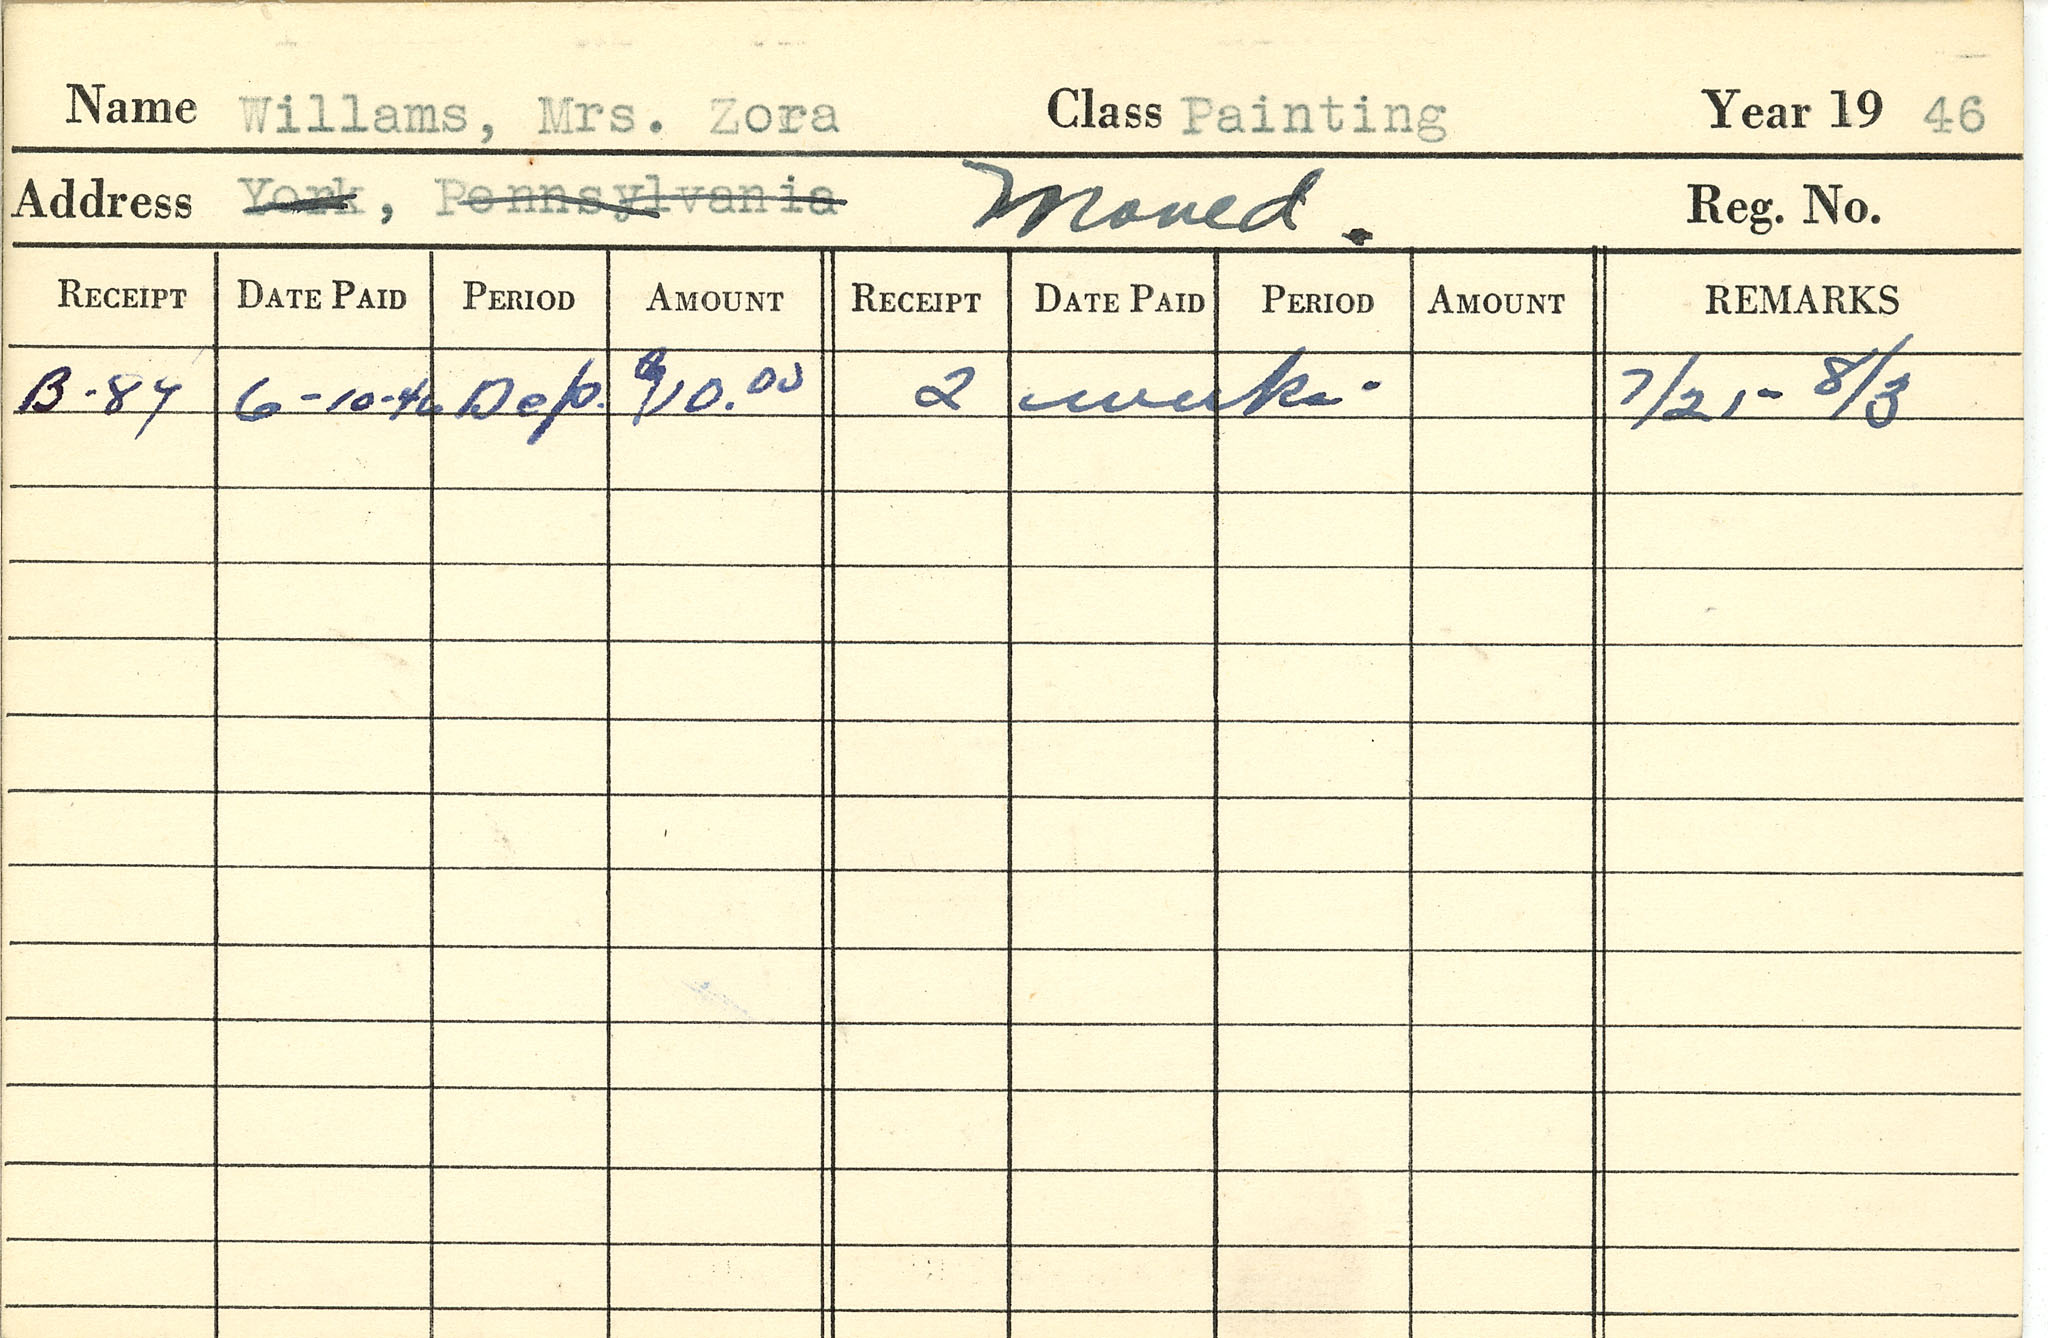 Name Willams, Mrs. Zora Class Painting Year 19 46
Address York, Pennsylvania Moved. Reg. No.
RECEIPT DATE PAID PERIOD AMOUNT RECEIPT DATE PAID PERIOD AMOUNT REMARKS
B-87 6-10-46 Dep. $10.00 2 weeks- 7/21- 8/3